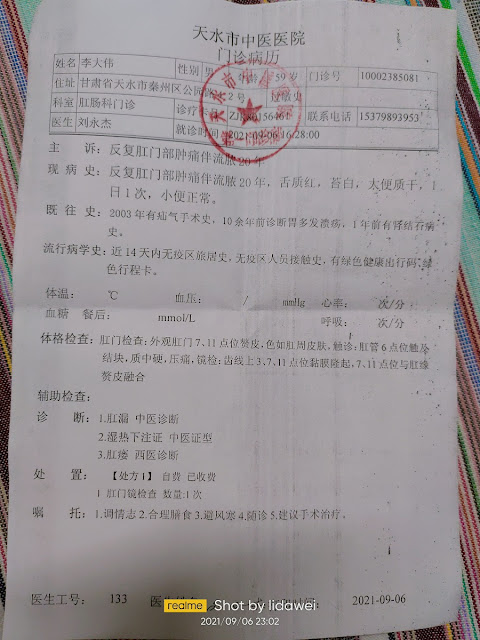 天水市中医医院
门诊病历
姓名 李大伟 性别 男 59岁 门诊号 10002385081
住址 甘肃省天水市秦州区公园路 2号 过敏史
科室 肛肠科门诊 诊疗 联系电话 15379893953
医生 刘永杰 就诊时间 2021-09-06 16:28:00
主 诉：反复肛门部肿痛伴流脓20年
现 病 史：反复肛门部肿痛伴流脓20年，舌质红，苔白，大便质干，1
日1次，小便正常。
既 往 史：2003年有疝气手术史，10余年前诊断胃多发溃疡，1年前有肾结石病
史。
流行病学史：近14天内无疫区旅居史，无疫区人员接触史，有绿色健康出行码，绿
色行程卡。
体温： ℃ 血压： / mmHg 心率： 次/分
血糖 餐后： mmol/L 呼吸： 次/分
体格检查：肛门检查：外观肛门7、11点位赘皮，色如肛周皮肤，触诊：肛管6点位触及
结块，质中硬，压痛，镜检：齿线上3、7、11点位黏膜隆起，7、11点位与肛缘
赘皮融合
辅助检查：
诊 断：1.肛漏 中医诊断
2.湿热下注证 中医证型
3.肛瘘 西医诊断
处 置：【处方1】 自费 已收费
1 肛门镜检查 数量：1次
嘱 托：1.调情志 2.合理膳食 3.避风寒 4.随诊 5.建议手术治疗。
医生工号： 133 2021-09-06
realme Shot by lidawei
2021/09/06 23:02